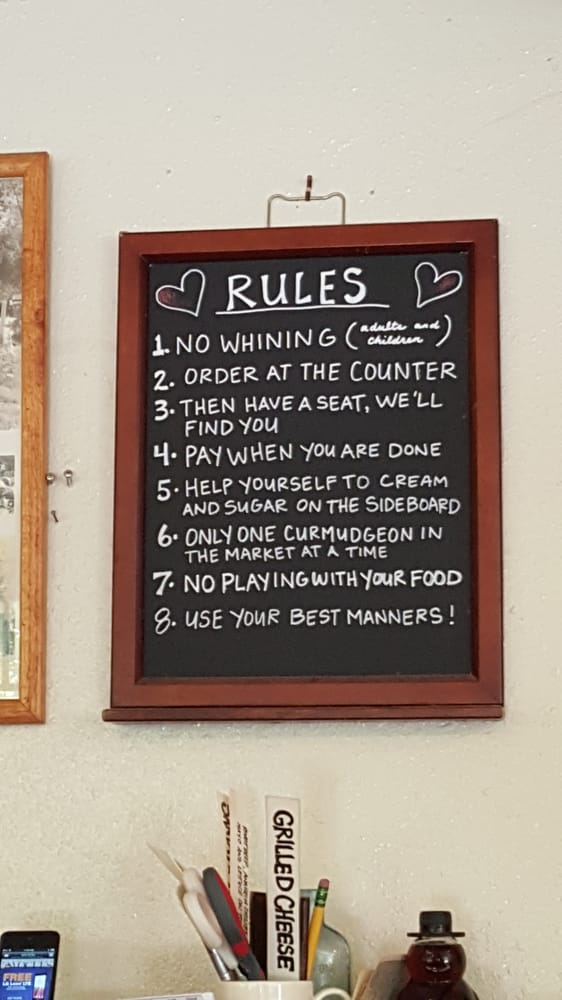 RULES
1. NO WHINING (adults and children)
2. ORDER AT THE COUNTER
3. THEN HAVE A SEAT, WE'LL
FIND YOU
4. PAY WHEN YOU ARE DONE
5. HELP YOURSELF TO CREAM
AND SUGAR ON THE SIDEBOARD
6. ONLY ONE CURMUDGEON IN
THE MARKET AT A TIME
7. NO PLAYING WITH YOUR FOOD
8. USE YOUR BEST MANNERS!
GRILLED CHEESE
FREE